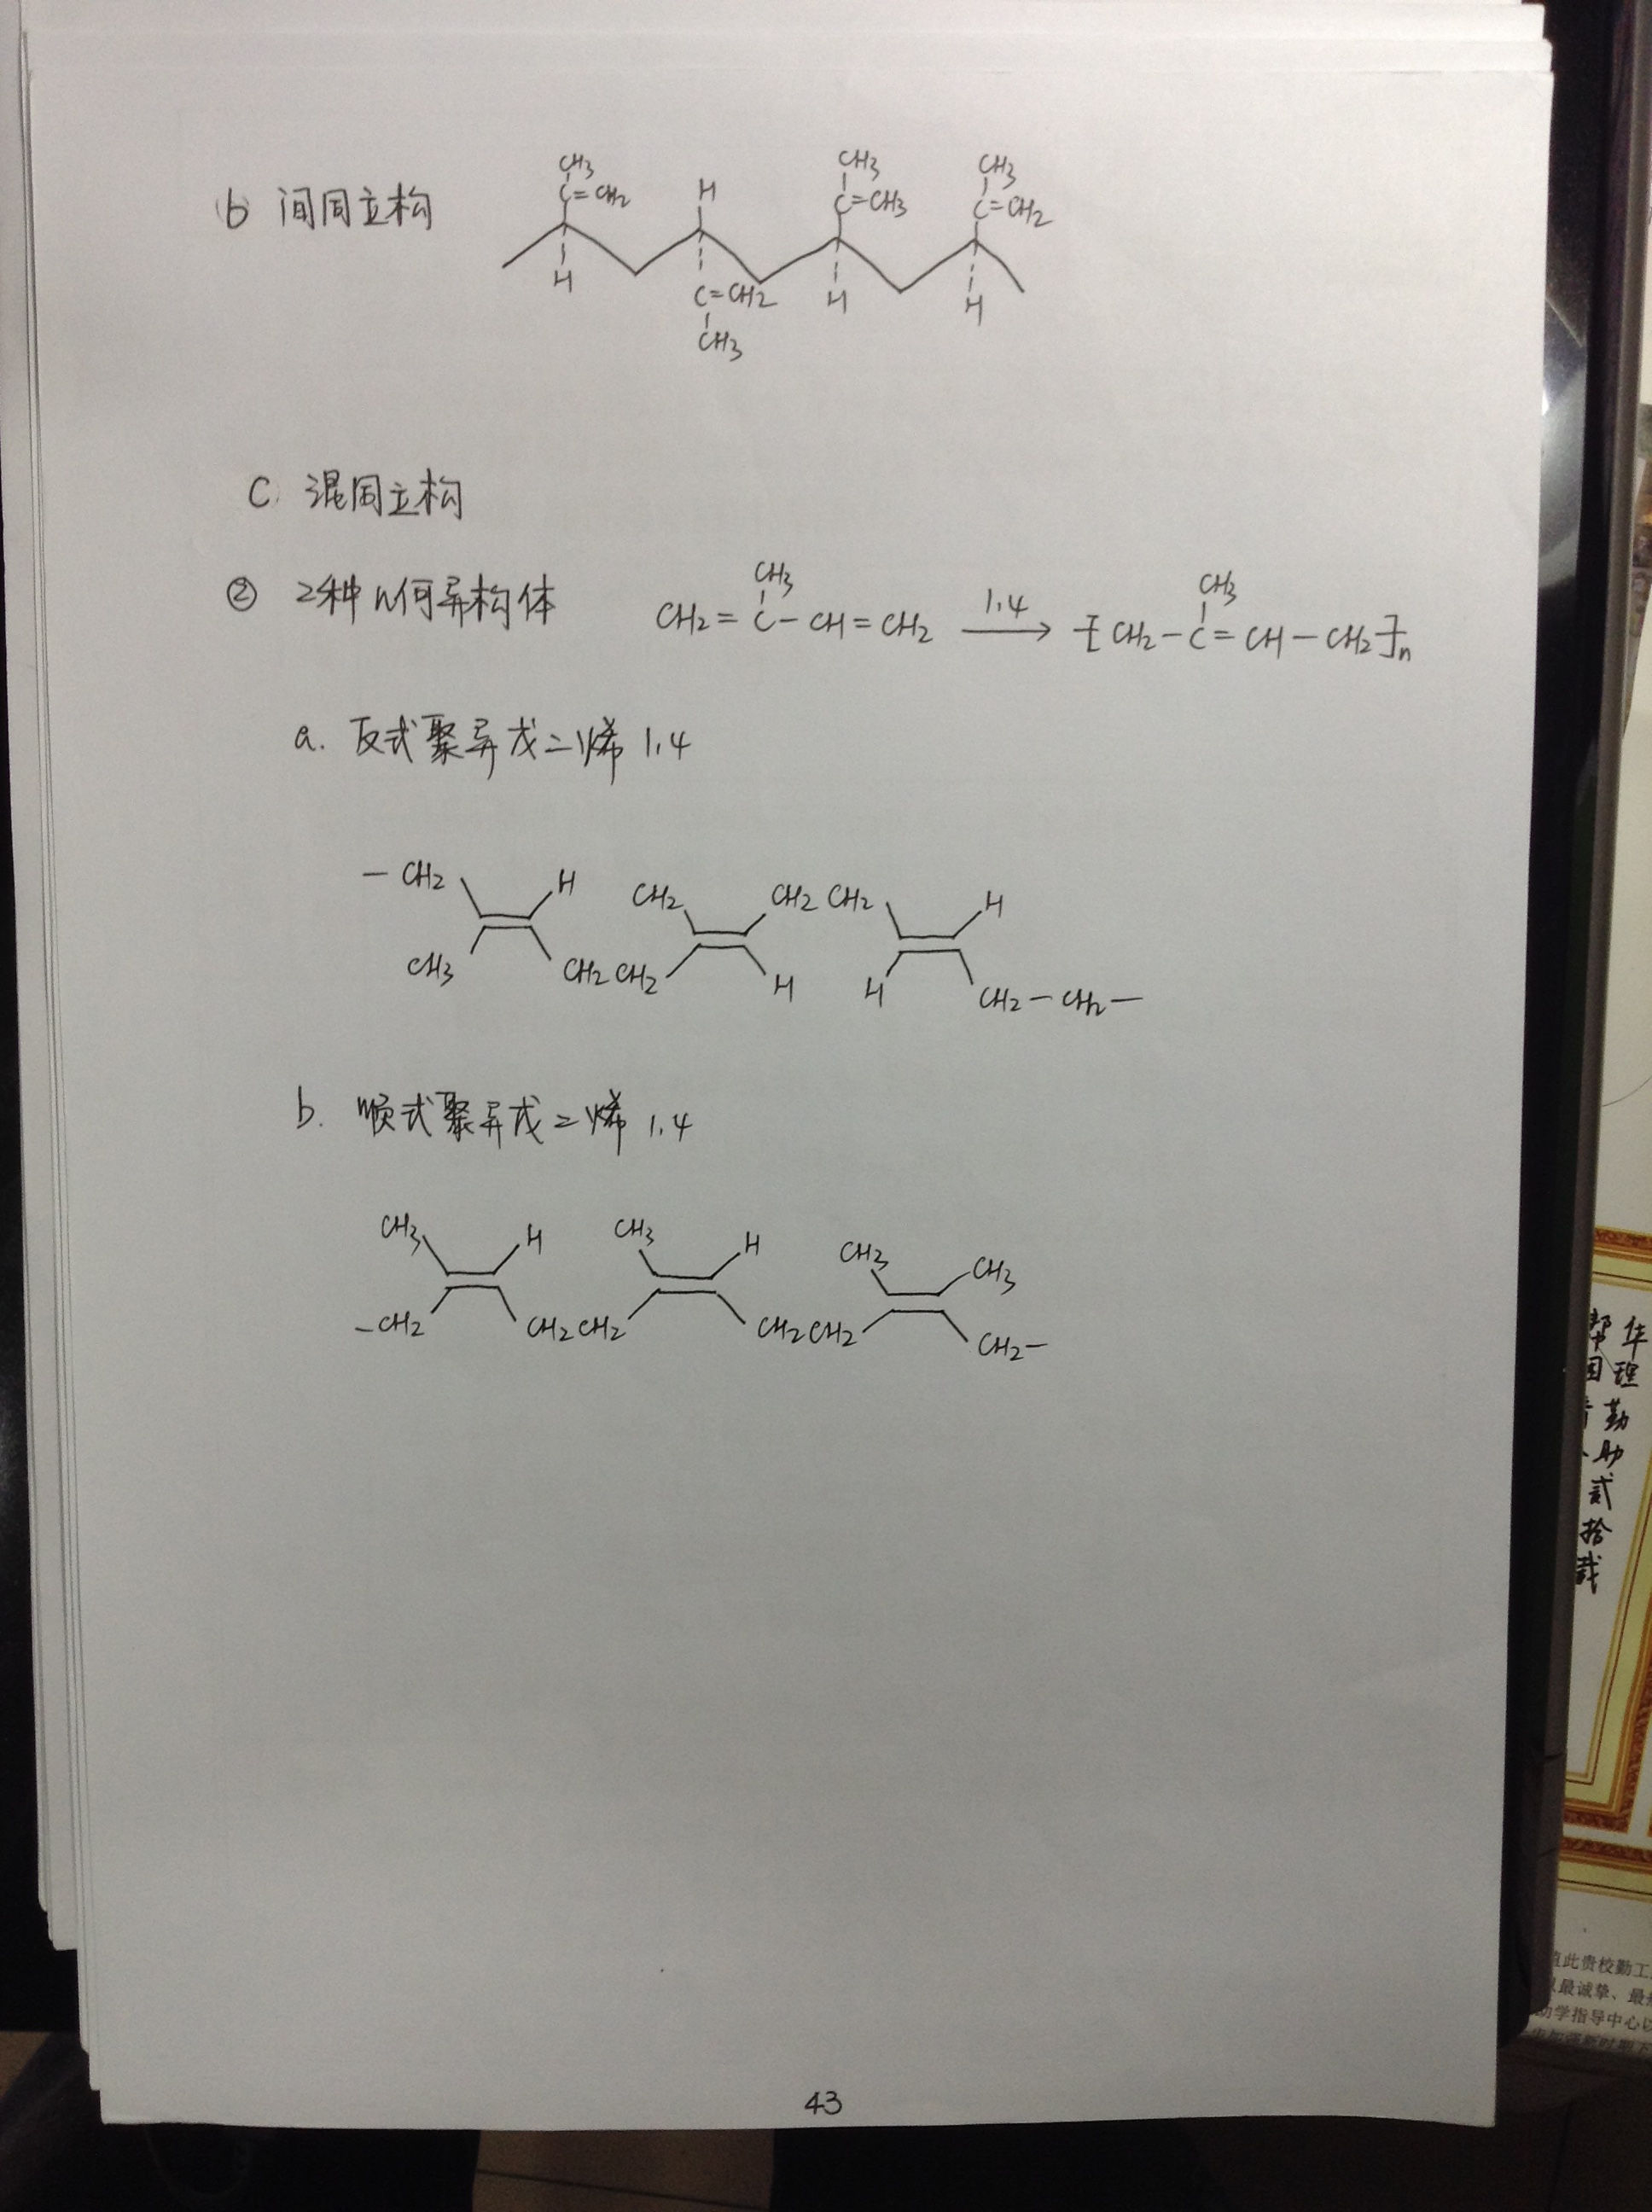 CH3 CH3 CH3
b 间同立构 C=CH2 H C=CH3 C=CH2
H C=CH2 H H
CH3
C. 混同立构
② 2种几何异构体 CH2=C-CH=CH2 1.4 [CH2-C=CH-CH2]n
CH3 CH3
a. 反式聚异戊二烯 1.4
-CH2 H CH2 CH2 CH2 H
CH3 CH2 CH2 H H CH2-CH2-
b. 顺式聚异戊二烯 1.4
CH3 H CH3 H CH3 CH3
-CH2 CH2 CH2 CH2 CH2 CH2-
43
华理勤助贰拾载
值此贵校勤工
最诚挚、最
助学指导中心以